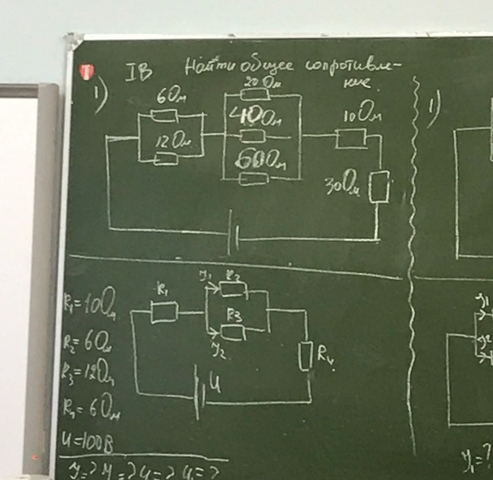 IВ Найти общее сопротивле-
ние.
1)
6Ом
12Ом
20Ом
40Ом
60Ом
10Ом
30Ом
1)
R₁=10Ом
R₂=6Ом
R₃=12Ом
R₄=6Ом
U=100В
R₁
J₁
R₂
R₃
J₂
R₄
U
J₁=?